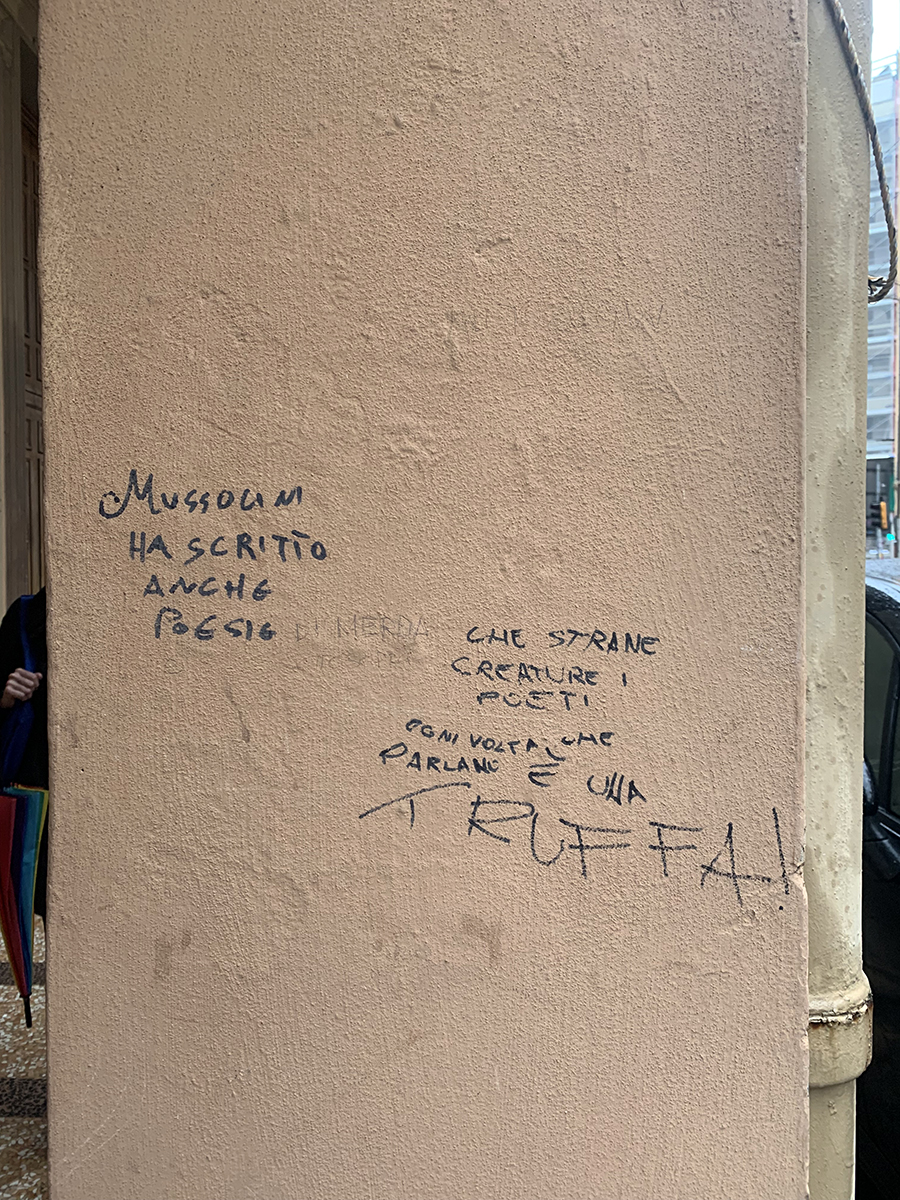 MUSSOLINI
HA SCRITTO
ANCHE
POESIE DI MERDA
CHE STRANE
CREATURE I
POETI
OGNI VOLTA CHE
PARLANO È UNA
TRUFFA!